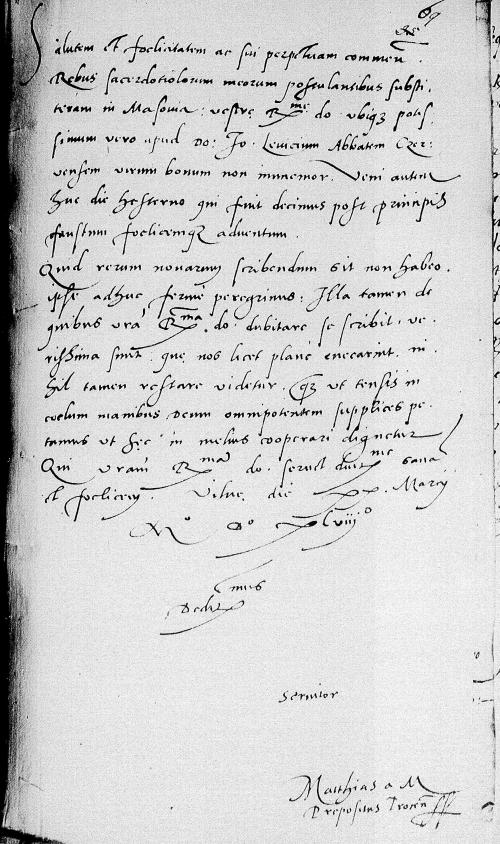 69
Salutem et foelicitatem ac sui perpetuam commen
Rebus sacerdotiolorum meorum postulantibus substi
teram in Masovia: vestrę R^me do ubiq3 potis
simum vero apud Do: Jo. Lewicium Abbatem Czer:
vensem virum bonum non immemor. Veni autem
huc die hesterno qui fuit decimus post principis
faustum foelicemq3 adventum.
Quid rerum novarum scribendum sit non habeo.
ipse adhuc fermè peregrinus: Illa tamen de
quibus vra R^ma do. dubitare se scribit. ve
rissima sunt. que nos licet plane enecarint. ni
hil tamen restare videtur. q3 ut tensis in
coelum manibus deum omnipotentem supplices pe
tamus ut hęc in melius cooperari dignetur
Qui vram R^ma do. servet diut^me sana
et foelicem. Vilne die xx. Marcy
M° D° xlviij°
Dedit^mus
Servitor
Matthias a M
Prepositus Trocen